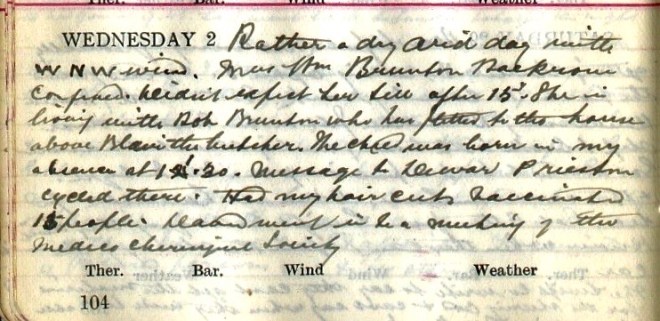 Ther. Bar. Wind Weather
WEDNESDAY 2 Rather a dry arid day with
W N W wind. Mrs Wm Brunton
Confined. didn't expect her till after 15th. She is
living with Bob Brunton who has to the house
above Blain the butcher. The child was born in my
absence at 1.20. Message to Dewar
cycled there. Had my hair cut. Vaccinated
15 people. went in to a meeting of the
Medico Chirurgical Society
Ther. Bar. Wind Weather
104